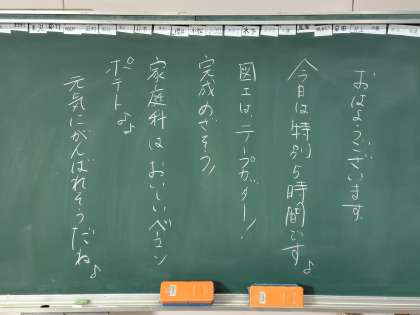 おはようございます
今日は特別5時間です♪
図工は、テープカッター!
完成めざそう!
家庭科はおいしいベーコン
ポテト♪♪
元気にがんばれそうだね♪